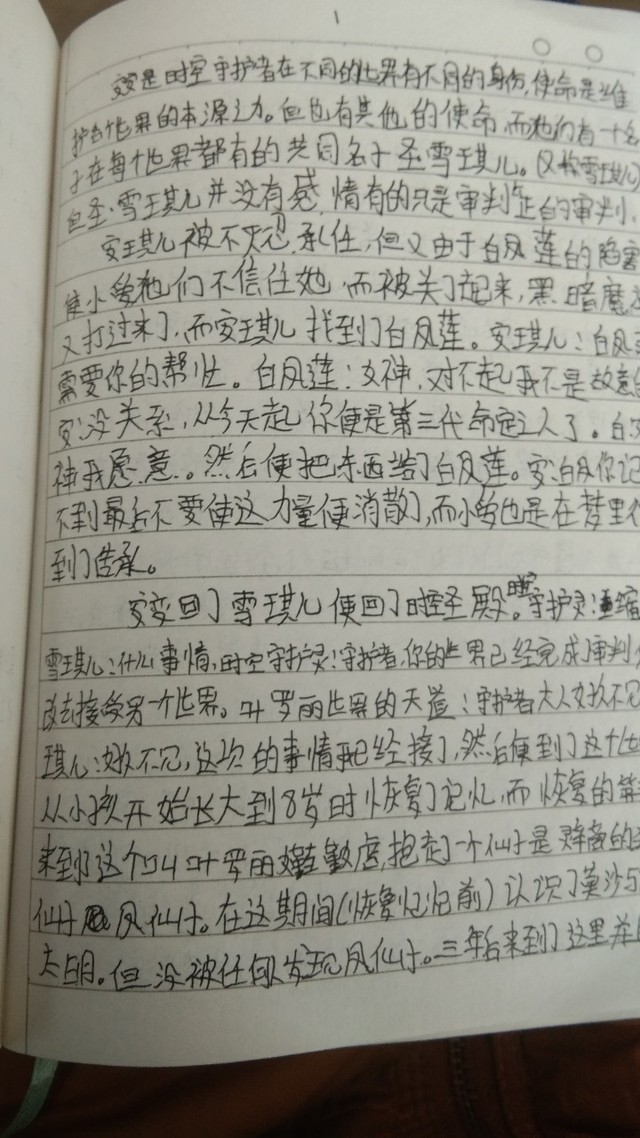 1
安是时空守护者在不同的世界有不同的身份,使命是维
护各个世界的本源之力。但也有其他的使命,而她们有一个名
字在每个世界都有的共同名字圣雪琪儿。(又称雪琪儿)
但圣·雪琪儿并没有感情有的只是审判 的审判
安琪儿被不 承任,但又由于白风莲的陷害
使小 他们不信任她,而被关了起来,黑暗魔
又打过来了,而安琪儿找到了白风莲。安琪儿:白风
需要你的帮忙。白风莲:女神,对不起我不是故意的
安:没关系,从今天起你便是第三代命定之人了。白
神我愿意。然后便把东西给了白风莲。安:白风你记
不到最后不要使这力量便消散了,而小 也是在梦里
到了传承。
安变回了雪琪儿便回了时空圣殿。时空守护灵:
雪琪儿:什么事情,时空守护灵:守护者,你的世界已经完成了审判
改去接受另一个世界。叶罗丽世界的天道:守护者大人好久不见
琪儿:好久不见,这次的事情我已经接了,然后便到了这个世
从小孩开始长大到8岁时恢复了记忆,而恢复的第
来到了这个 叶罗丽 ,抱走了一个仙子是 的
仙子 风仙子。在这期间(恢复记忆前)认识了莫沙与
太阳。但没被任何人发现风仙子。三年后来到了这里并